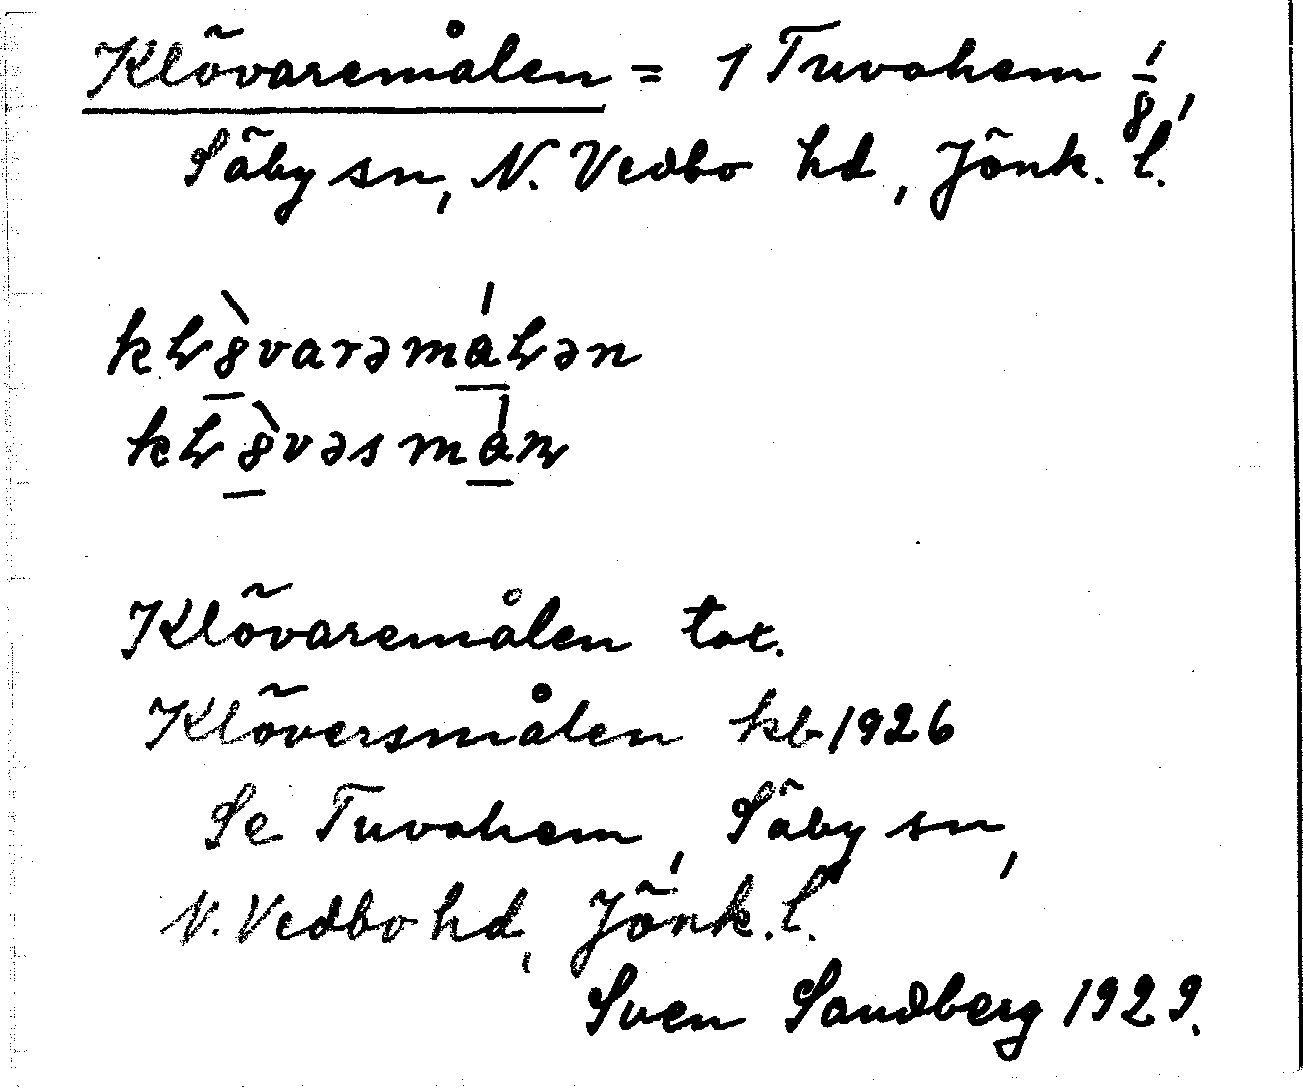 Klövaremålen = 1 Tuvahem 1/8,
Säby sn, N. Vedbo hd, Jönk. l.
Klövaremålen tax.
Klöversmålen kb 1926
Se Tuvahem, Säby sn,
N. Vedbo hd, Jönk. l.
Sven Sandberg 1929.